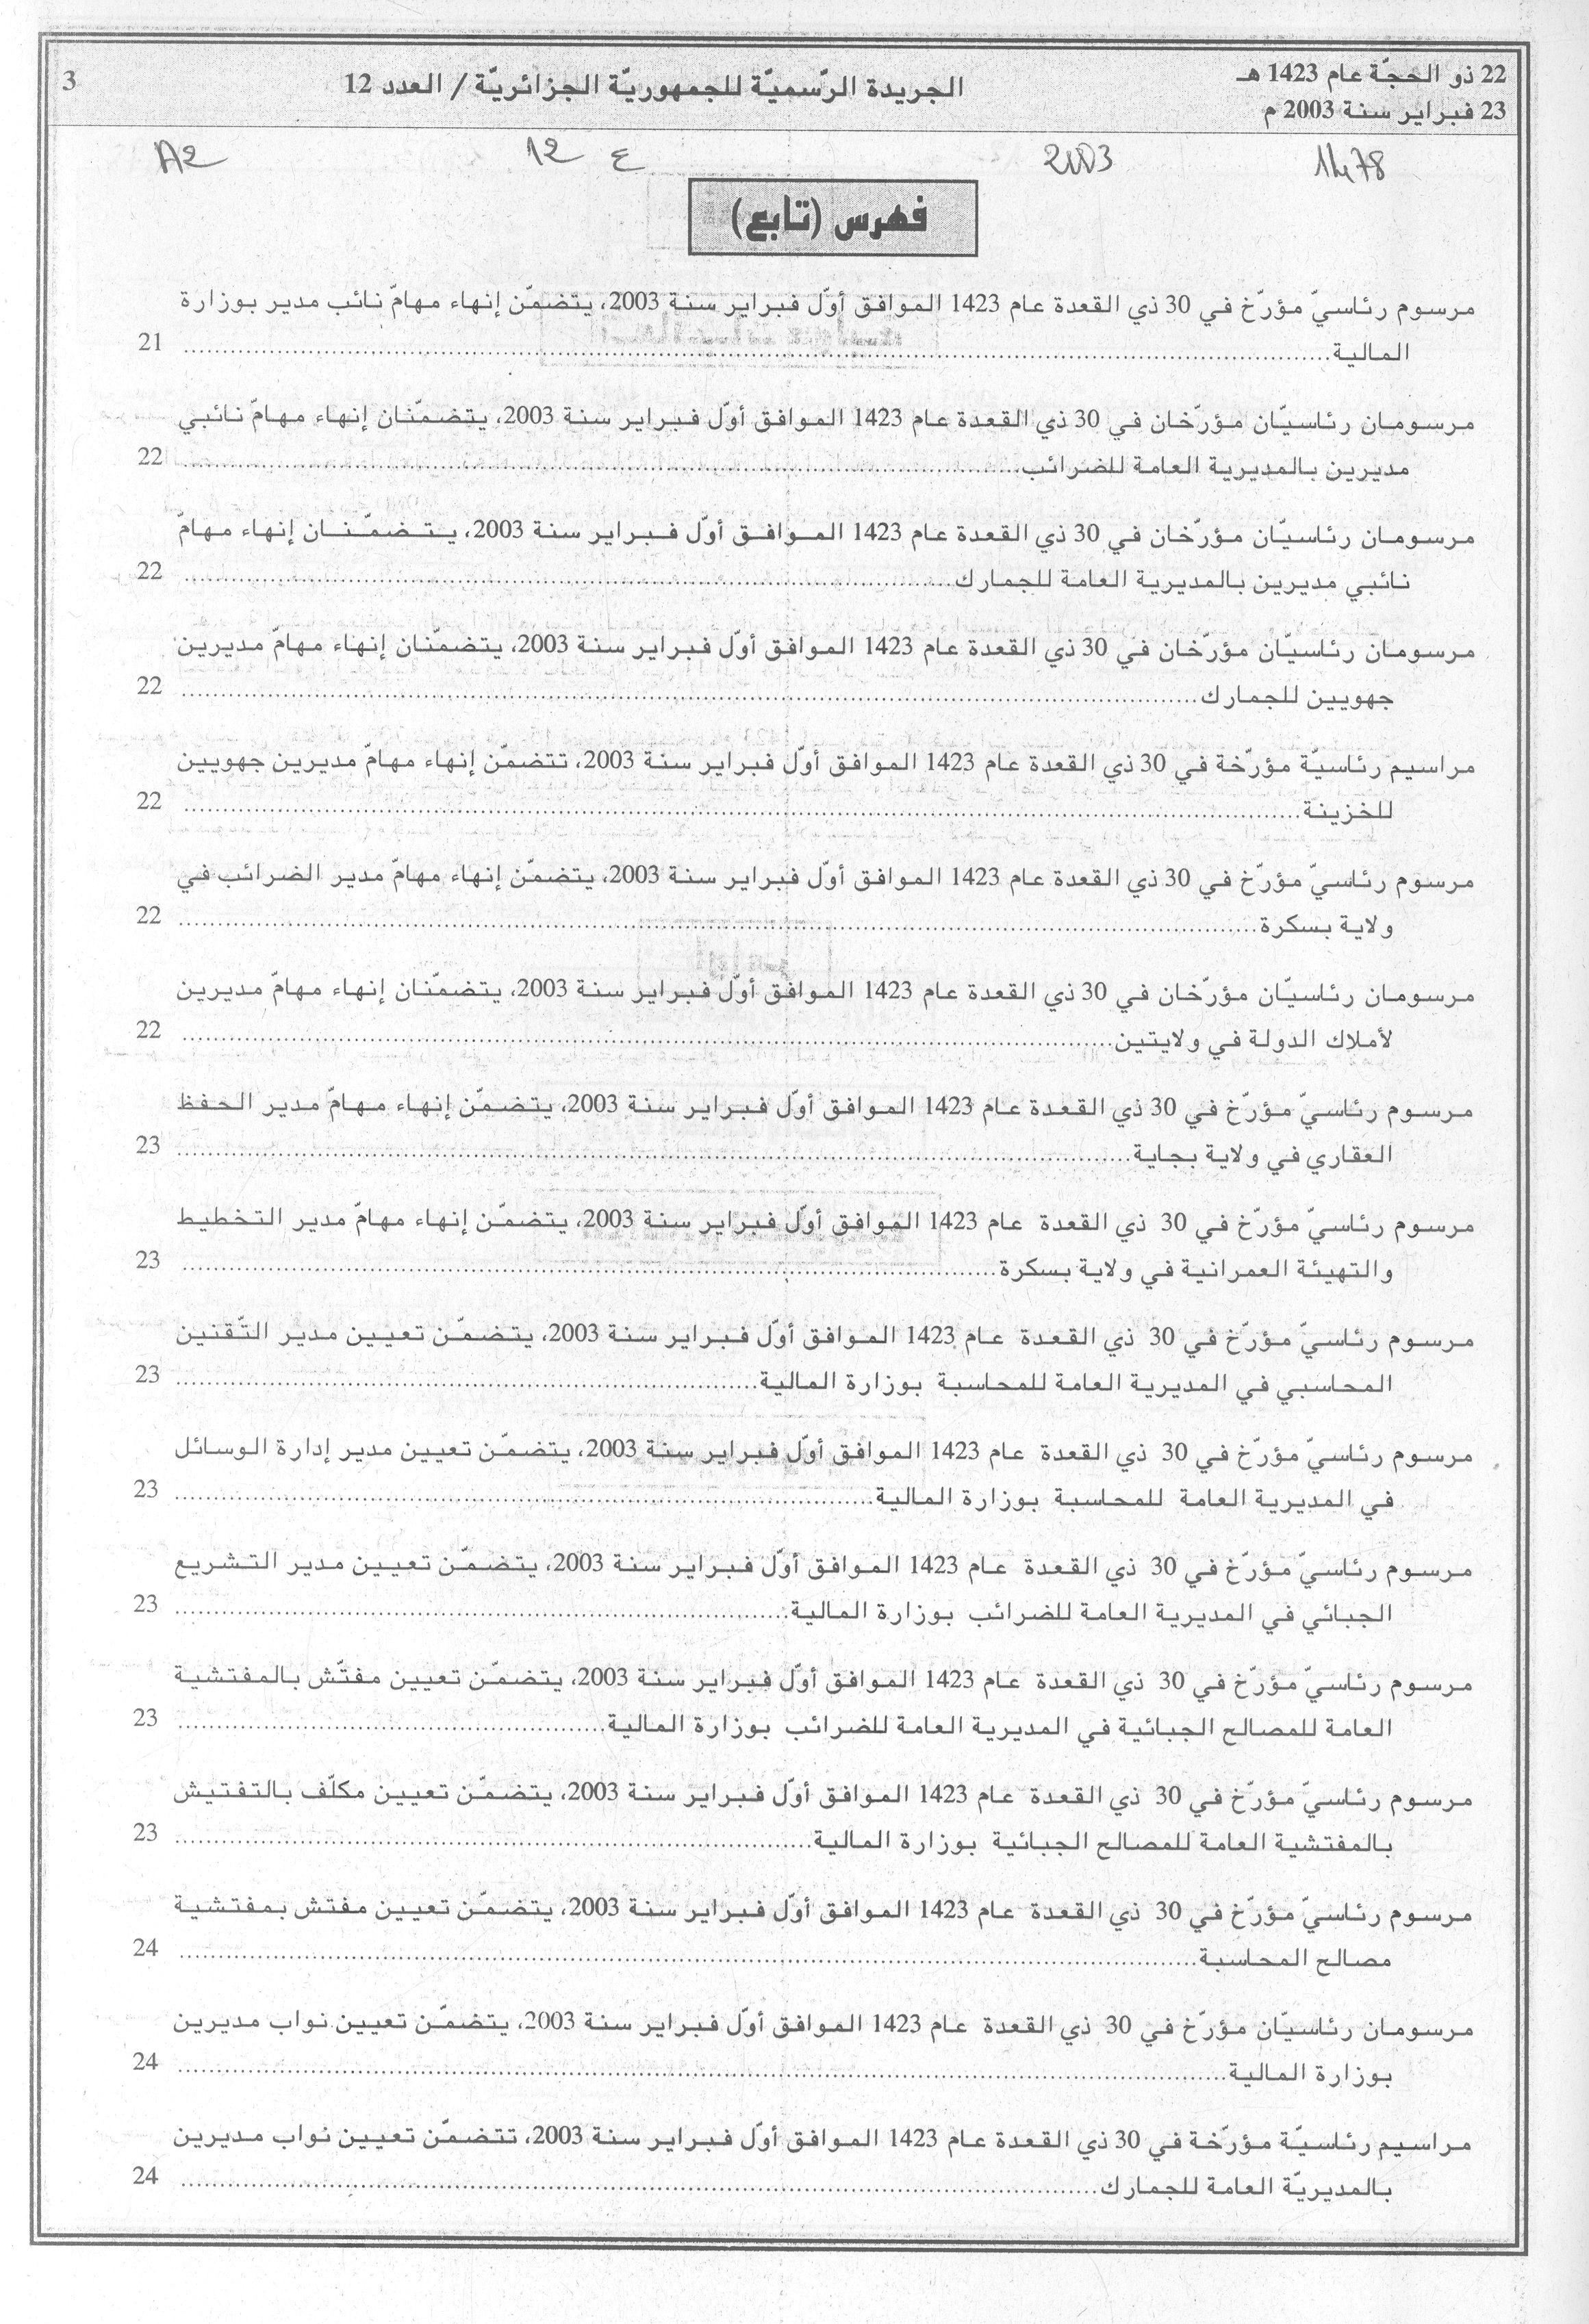 22 ذو الحجّة عام 1423 هـ
23 فبراير سنة 2003 م
الجريدة الرّسميّة للجمهوريّة الجزائريّة / العدد 12
3
1478 2003 ع 12 A2
فهرس (تابع)
مرسوم رئاسيّ مؤرّخ في 30 ذي القعدة عام 1423 الموافق أوّل فبراير سنة 2003، يتضمّن إنهاء مهامّ نائب مدير بوزارة
المالية 21
مرسومان رئاسيّان مؤرّخان في 30 ذي القعدة عام 1423 الموافق أوّل فبراير سنة 2003، يتضمّنان إنهاء مهامّ نائبي
مديرين بالمديرية العامة للضرائب 22
مرسومان رئاسيّان مؤرّخان في 30 ذي القعدة عام 1423 الموافق أوّل فبراير سنة 2003، يتضمّنان إنهاء مهامّ
نائبي مديرين بالمديرية العامة للجمارك 22
مرسومان رئاسيّان مؤرّخان في 30 ذي القعدة عام 1423 الموافق أوّل فبراير سنة 2003، يتضمّنان إنهاء مهامّ مديرين
جهويين للجمارك 22
مراسيم رئاسيّة مؤرّخة في 30 ذي القعدة عام 1423 الموافق أوّل فبراير سنة 2003، تتضمّن إنهاء مهامّ مديرين جهويين
للخزينة 22
مرسوم رئاسيّ مؤرّخ في 30 ذي القعدة عام 1423 الموافق أوّل فبراير سنة 2003، يتضمّن إنهاء مهامّ مدير الضرائب في
ولاية بسكرة 22
مرسومان رئاسيّان مؤرّخان في 30 ذي القعدة عام 1423 الموافق أوّل فبراير سنة 2003، يتضمّنان إنهاء مهامّ مديرين
لأملاك الدولة في ولايتين 22
مرسوم رئاسيّ مؤرّخ في 30 ذي القعدة عام 1423 الموافق أوّل فبراير سنة 2003، يتضمّن إنهاء مهامّ مدير الحفظ
العقاري في ولاية بجاية 23
مرسوم رئاسيّ مؤرّخ في 30 ذي القعدة عام 1423 الموافق أوّل فبراير سنة 2003، يتضمّن إنهاء مهامّ مدير التخطيط
والتهيئة العمرانية في ولاية بسكرة 23
مرسوم رئاسيّ مؤرّخ في 30 ذي القعدة عام 1423 الموافق أوّل فبراير سنة 2003، يتضمّن تعيين مدير التّقنين
المحاسبي في المديرية العامة للمحاسبة بوزارة المالية 23
مرسوم رئاسيّ مؤرّخ في 30 ذي القعدة عام 1423 الموافق أوّل فبراير سنة 2003، يتضمّن تعيين مدير إدارة الوسائل
في المديرية العامة للمحاسبة بوزارة المالية 23
مرسوم رئاسيّ مؤرّخ في 30 ذي القعدة عام 1423 الموافق أوّل فبراير سنة 2003، يتضمّن تعيين مدير التشريع
الجبائي في المديرية العامة للضرائب بوزارة المالية 23
مرسوم رئاسيّ مؤرّخ في 30 ذي القعدة عام 1423 الموافق أوّل فبراير سنة 2003، يتضمّن تعيين مفتّش بالمفتشية
العامة للمصالح الجبائية في المديرية العامة للضرائب بوزارة المالية 23
مرسوم رئاسيّ مؤرّخ في 30 ذي القعدة عام 1423 الموافق أوّل فبراير سنة 2003، يتضمّن تعيين مكلّف بالتفتيش
بالمفتشية العامة للمصالح الجبائية بوزارة المالية 23
مرسوم رئاسيّ مؤرّخ في 30 ذي القعدة عام 1423 الموافق أوّل فبراير سنة 2003، يتضمّن تعيين مفتش بمفتشية
مصالح المحاسبة 24
مرسومان رئاسيّان مؤرّخ في 30 ذي القعدة عام 1423 الموافق أوّل فبراير سنة 2003، يتضمّن تعيين نواب مديرين
بوزارة المالية 24
مراسيم رئاسيّة مؤرّخة في 30 ذي القعدة عام 1423 الموافق أوّل فبراير سنة 2003، تتضمّن تعيين نواب مديرين
بالمديريّة العامة للجمارك 24